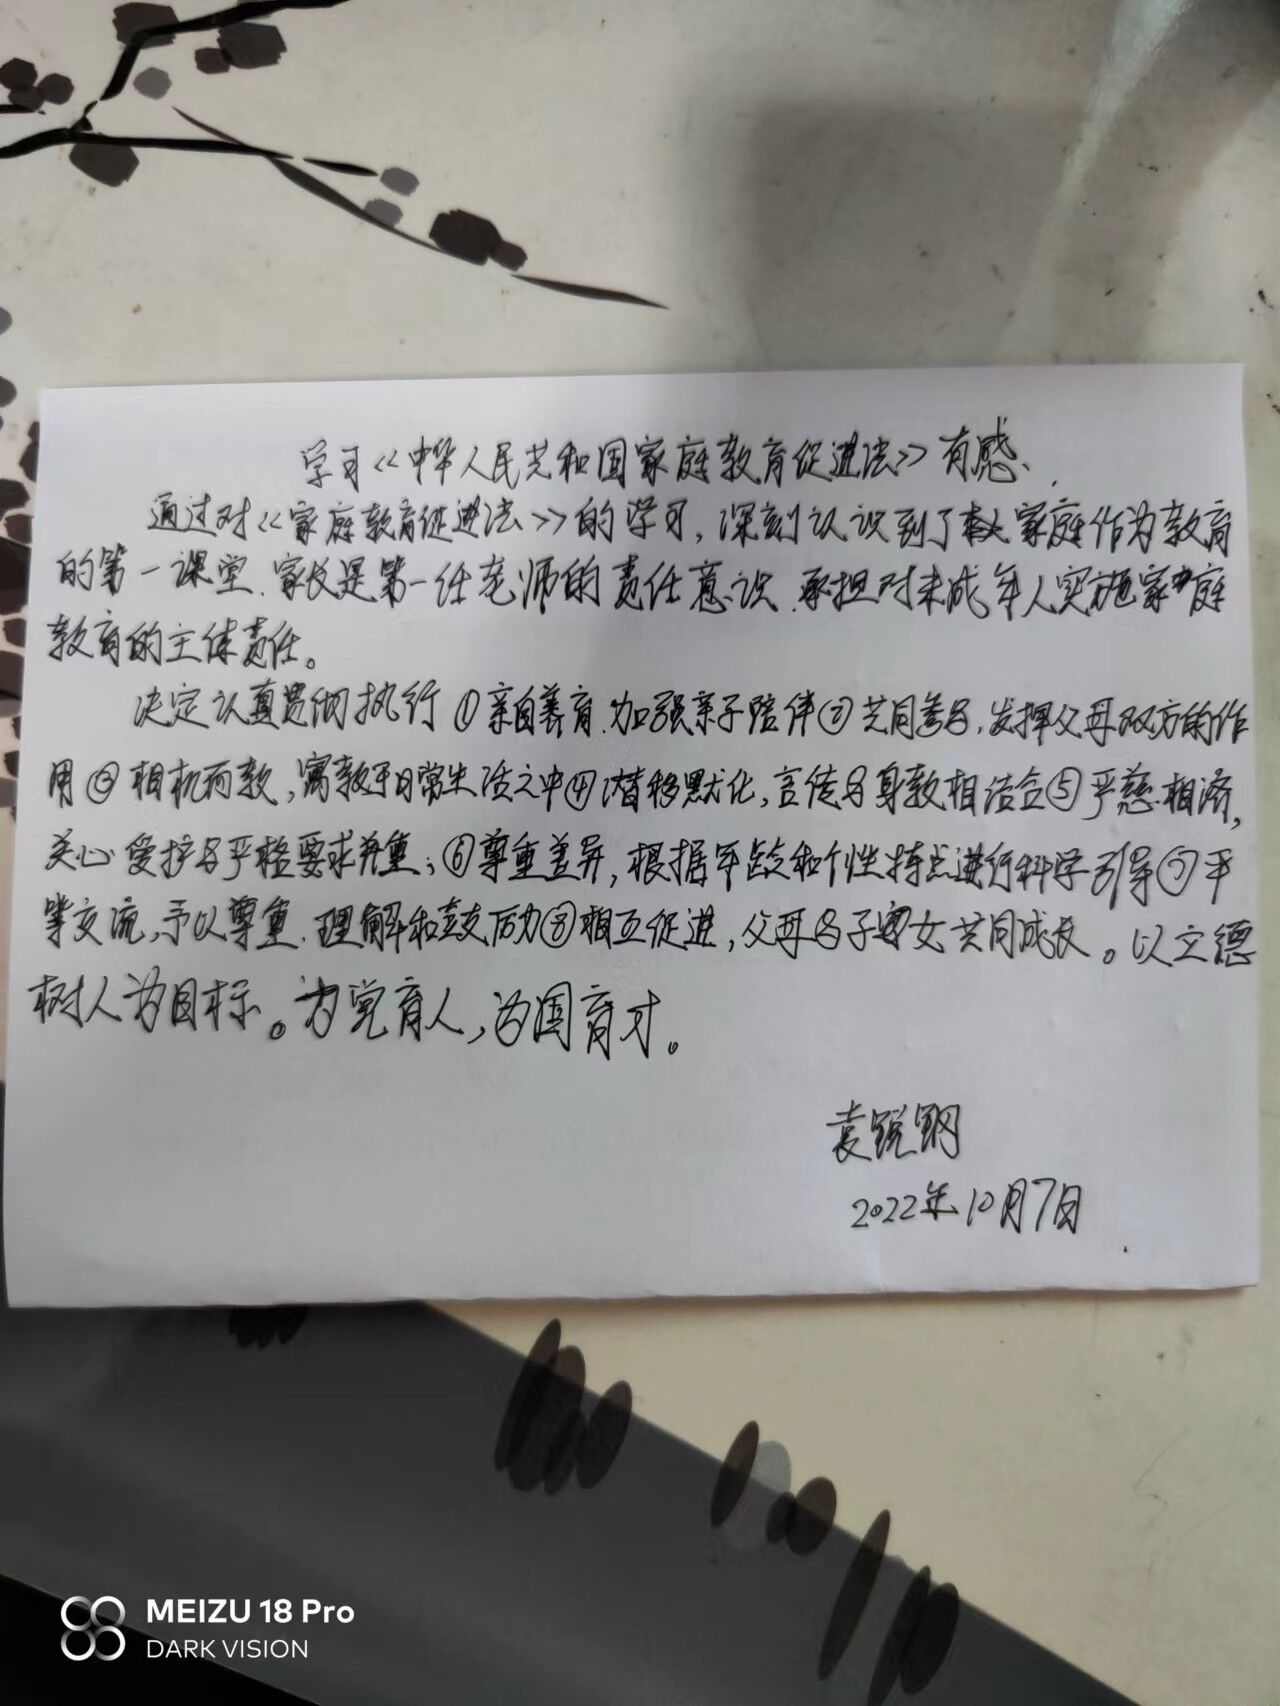 学习《中华人民共和国家庭教育促进法》有感、
通过对《家庭教育促进法》的学习，深刻认识到了家庭作为教育
的第一课堂、家长是第一任老师的责任意识、承担对未成年人实施家庭
教育的主体责任。
决定认真贯彻执行①亲自养育、加强亲子陪伴②共同参与，发挥父母双方的作
用③相机而教，寓教于日常生活之中④潜移默化，言传与身教相结合⑤严慈相济，
关心爱护与严格要求并重；⑥尊重差异，根据年龄和个性特点进行科学引导⑦平
等交流，予以尊重、理解和鼓励⑧相互促进，父母与子女共同成长。以立德
树人为目标。为党育人，为国育才。
袁锐钢
2022年10月7日
MEIZU 18 Pro
DARK VISION